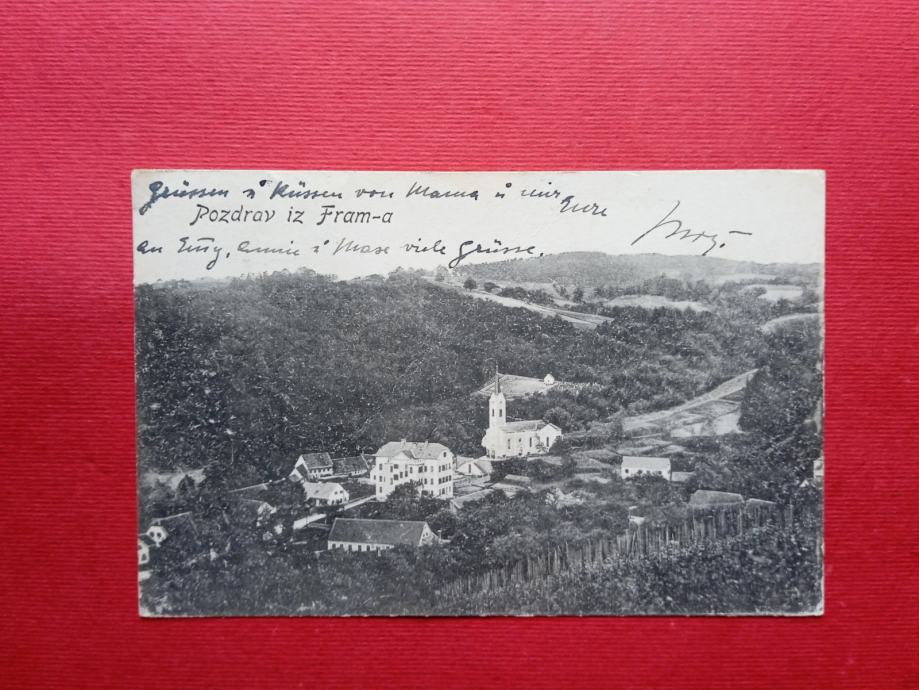 Grüssen u Küssen von Mama u mir
Eure
Pozdrav iz Fram-a
an Emy, Annie u Mase viele Grüsse.